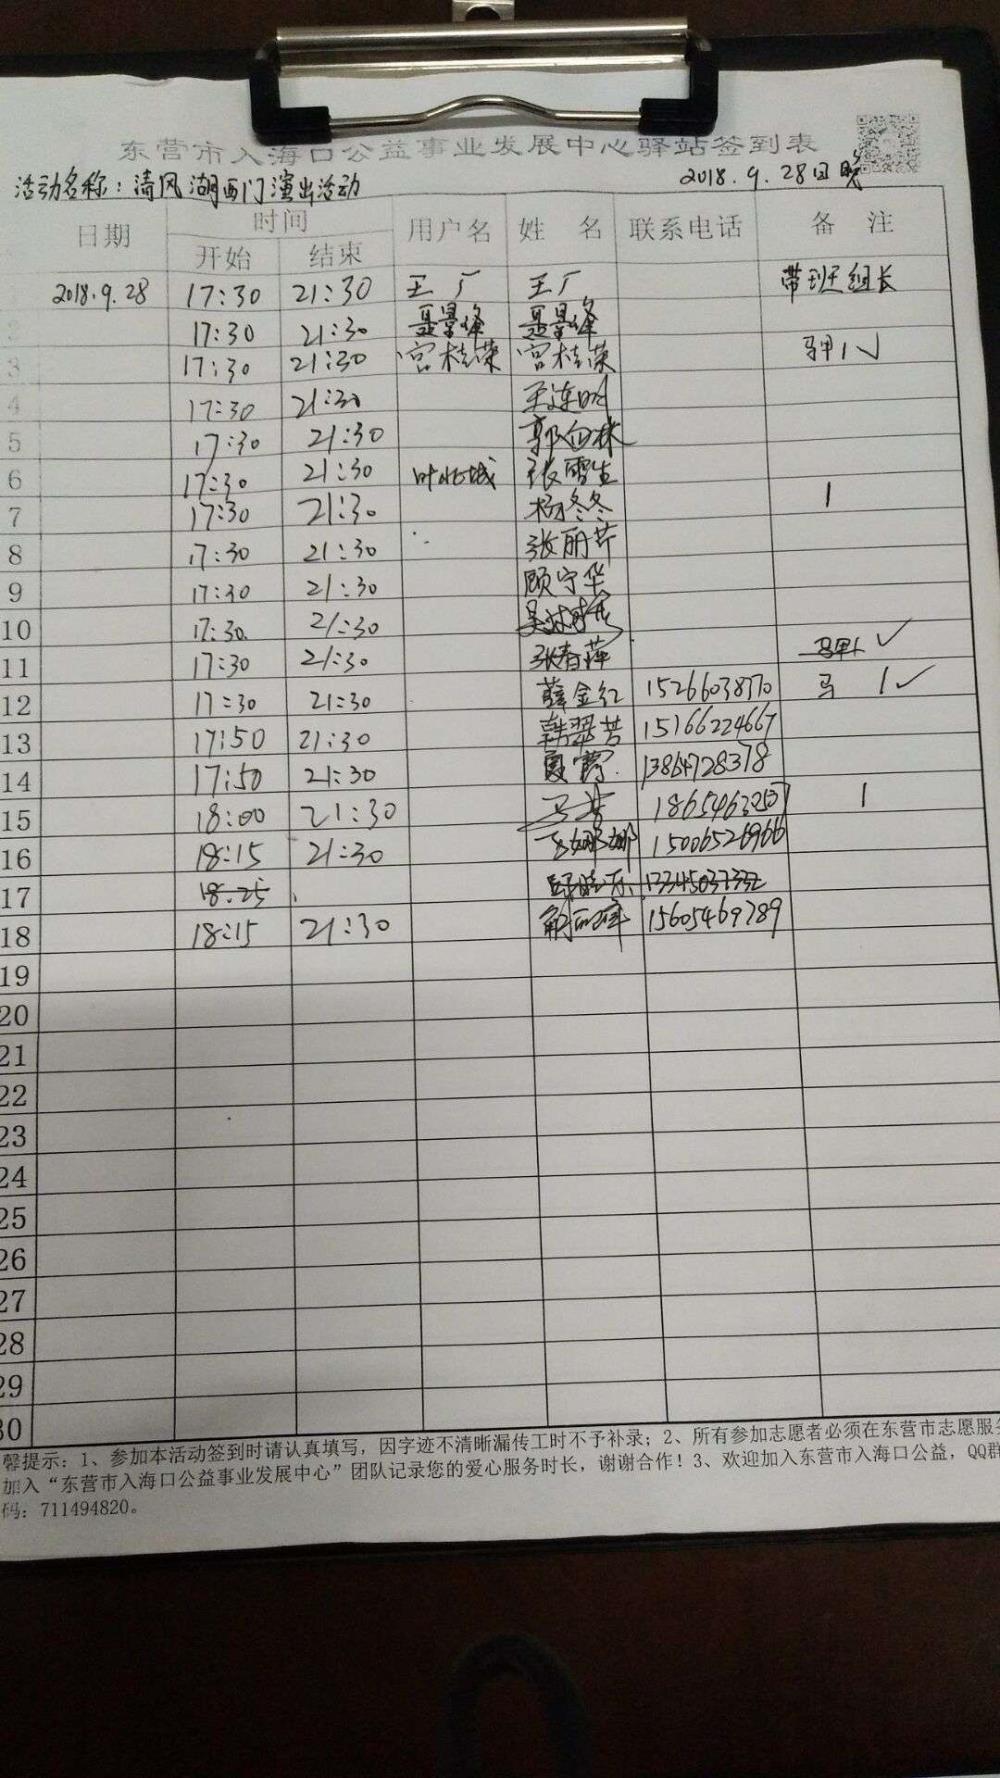 东营市入海口公益事业发展中心驿站签到表
活动名称：清风湖西门演出活动 2018.9.28日晚
日期 时间 用户名 姓 名 联系电话 备 注
开始 结束
2018.9.28 17:30 21:30 王广 王广 带班组长
17:30 21:30 聂景峰 聂景峰
3 17:30 21:30 宫桂荣 宫桂荣 马甲1
4 17:30 21:30 王连明
5 17:30 21:30
6 17:30 21:30 张雪生
7 17:30 21:30 杨冬冬 1
8 17:30 21:30 张丽芹
9 17:30 21:30 顾守华
10 17:30 21:30
11 17:30 21:30 张春萍 马甲1 ✓
12 17:30 21:30 薛金红 15266038770 马 1✓
13 17:50 21:30 韩翠芳 15166224667
14 17:50 21:30 夏霞 13864728378
15 18:00 21:30 1
16 18:15 21:30 王娜娜 15006526966
17 18:25
18 18:15 21:30 15605469789
19
20
21
22
23
24
25
26
27
28
29
30
馨提示：1、参加本活动签到时请认真填写，因字迹不清晰漏传工时不予补录；2、所有参加志愿者必须在东营市志愿服务
加入“东营市入海口公益事业发展中心”团队记录您的爱心服务时长，谢谢合作！3、欢迎加入东营市入海口公益，QQ群
码：711494820。